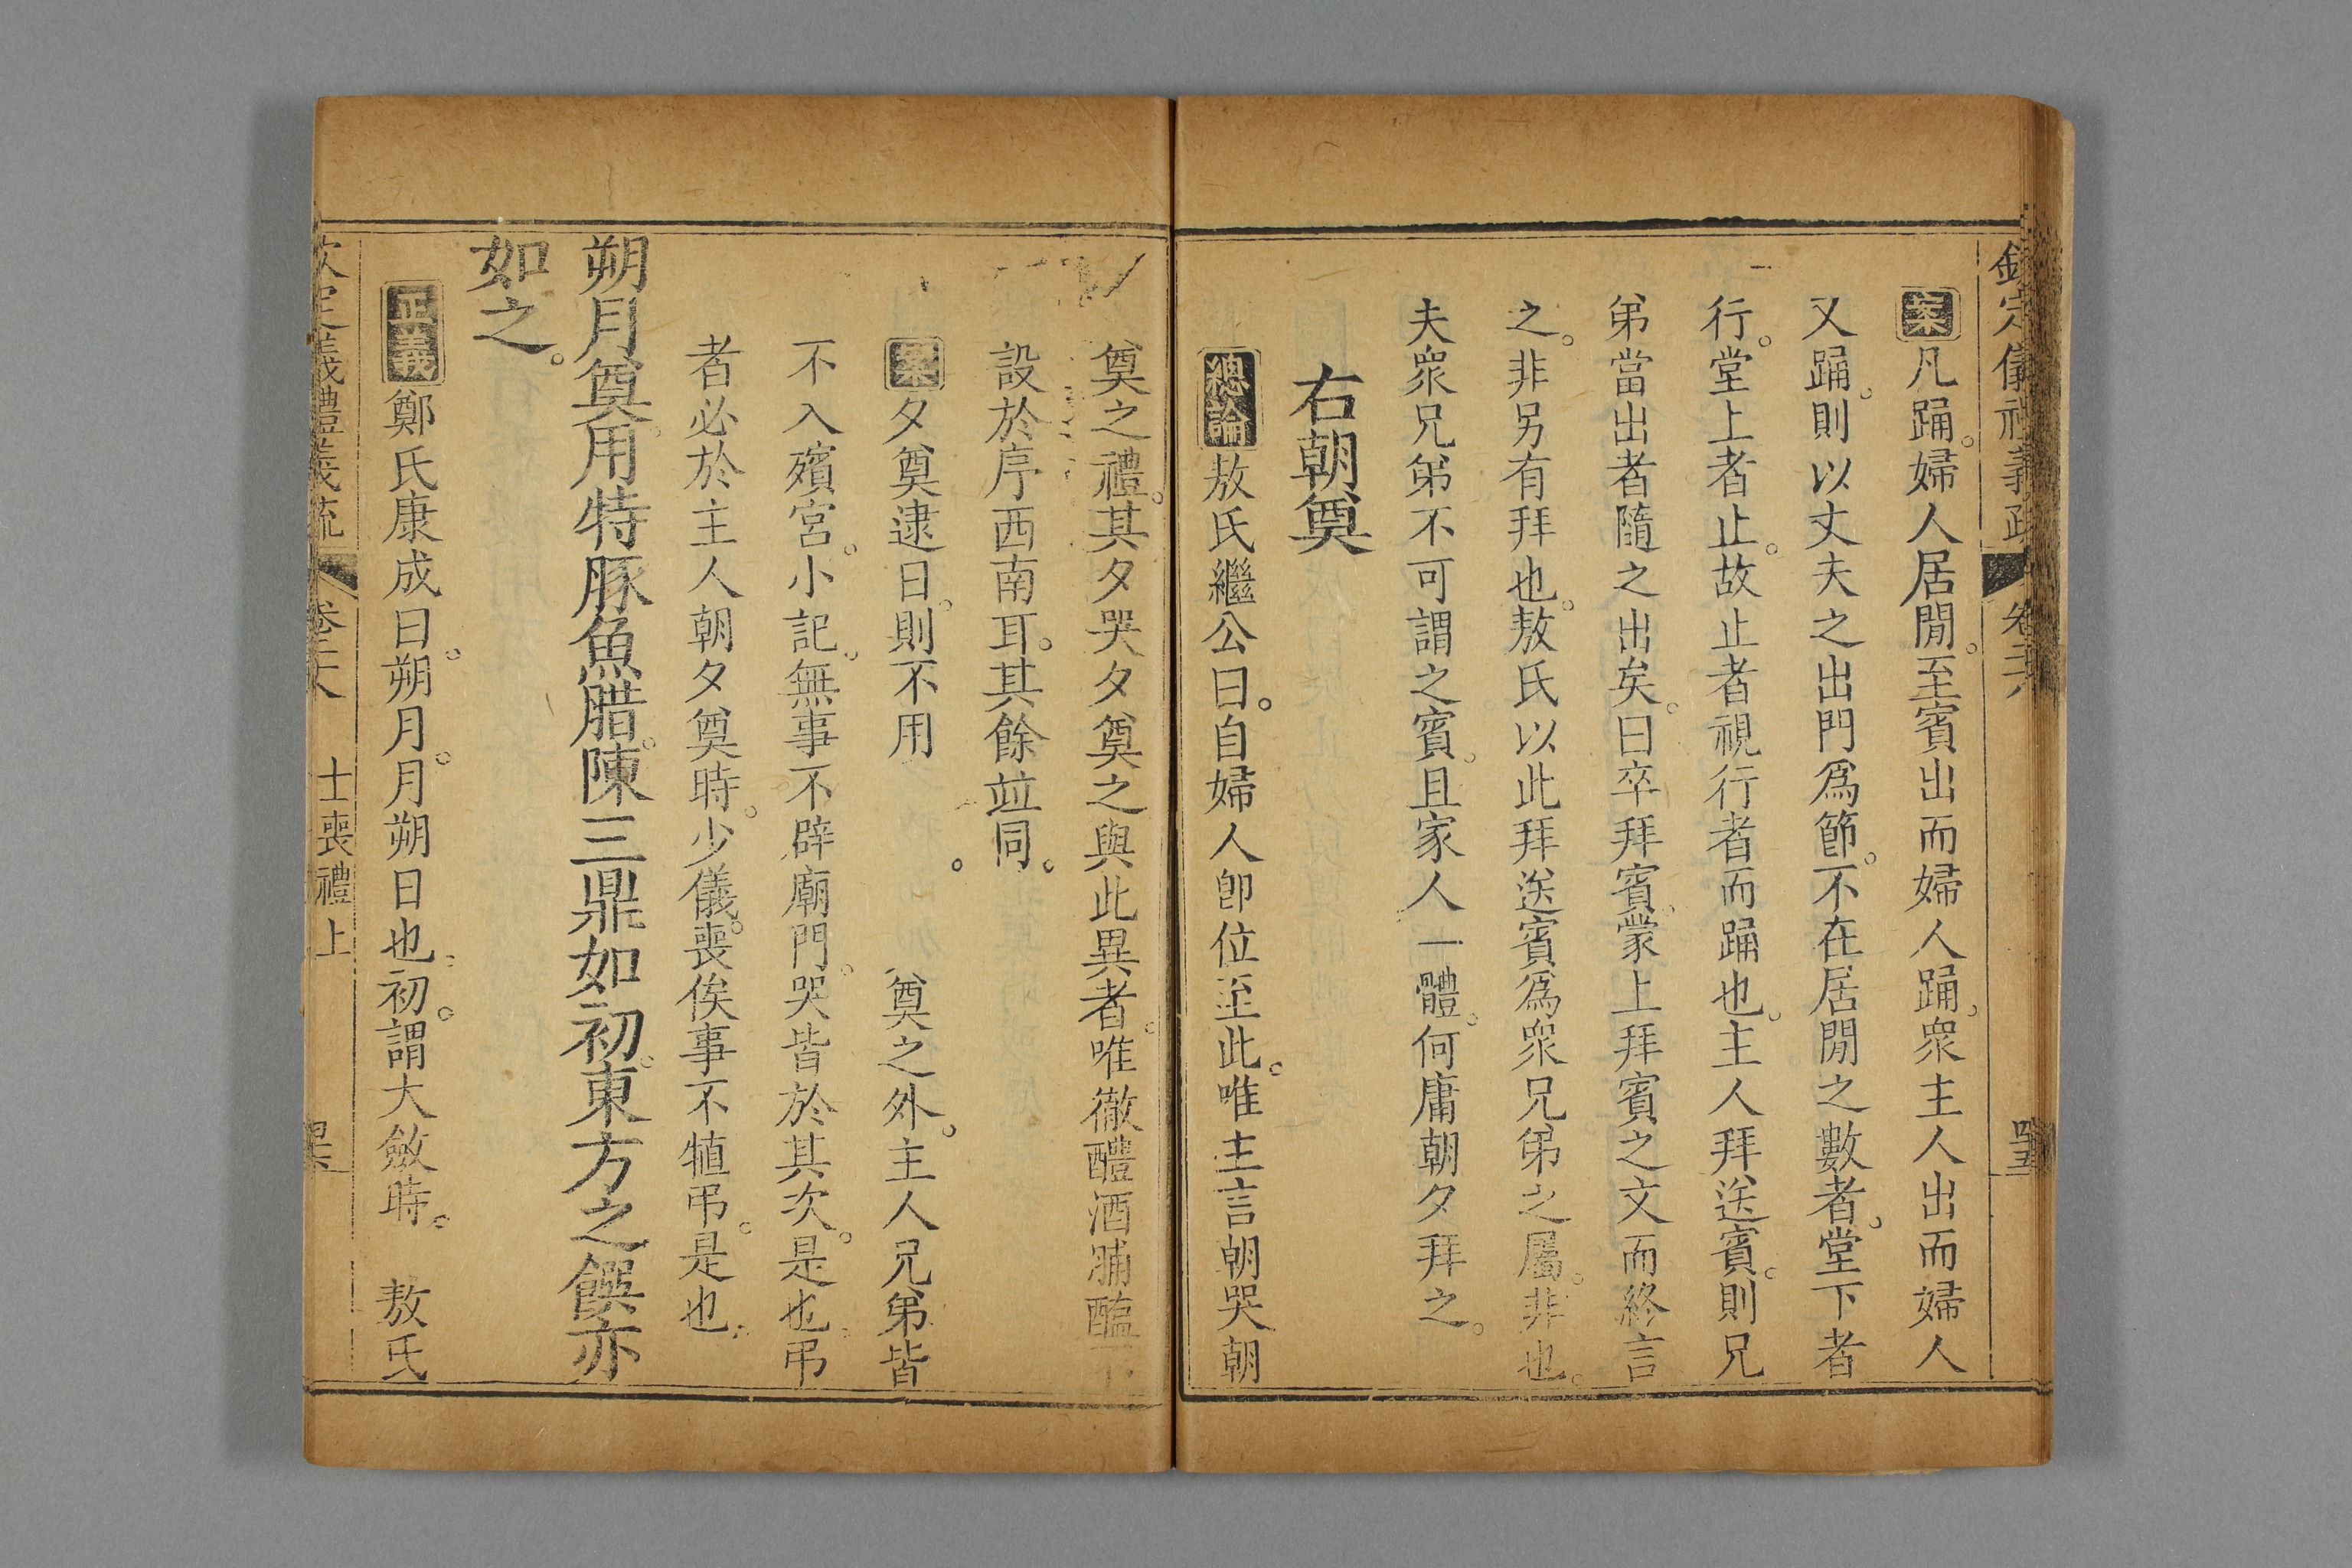 欽定儀禮義疏 卷二十八 罡
案凡踊。婦人居閒。至賓出而婦人踊。衆主人出而婦人
又踊。則以丈夫之出門爲節。不在居閒之數者。堂下者
行。堂上者止。故止者視行者而踊也。主人拜送賓。則兄
弟當出者隨之出矣。曰卒拜賓。蒙上拜賓之文而終言
之。非另有拜也。敖氏以此拜送賓爲衆兄弟之屬。非也。
夫衆兄弟不可謂之賓。且家人一體。何庸朝夕拜之。
右朝奠
總論敖氏繼公曰。自婦人卽位至此。唯主言朝哭朝
奠之禮。其夕哭夕奠之與此異者。唯徹醴酒脯醢不
設於序西南耳。其餘竝同。
案夕奠逮日。則不用 奠之外。主人兄弟皆
不入殯宮。小記。無事不辟廟門。哭皆於其次。是也。弔
者必於主人朝夕奠時。少儀。喪俟事不犆弔。是也。
朔月奠。用特豚魚腊。陳三鼎如初。東方之饌亦
如之。
正義鄭氏康成曰。朔月。月朔日也。初。謂大斂時。 敖氏
欽定義禮義疏 卷二十八 士喪禮上